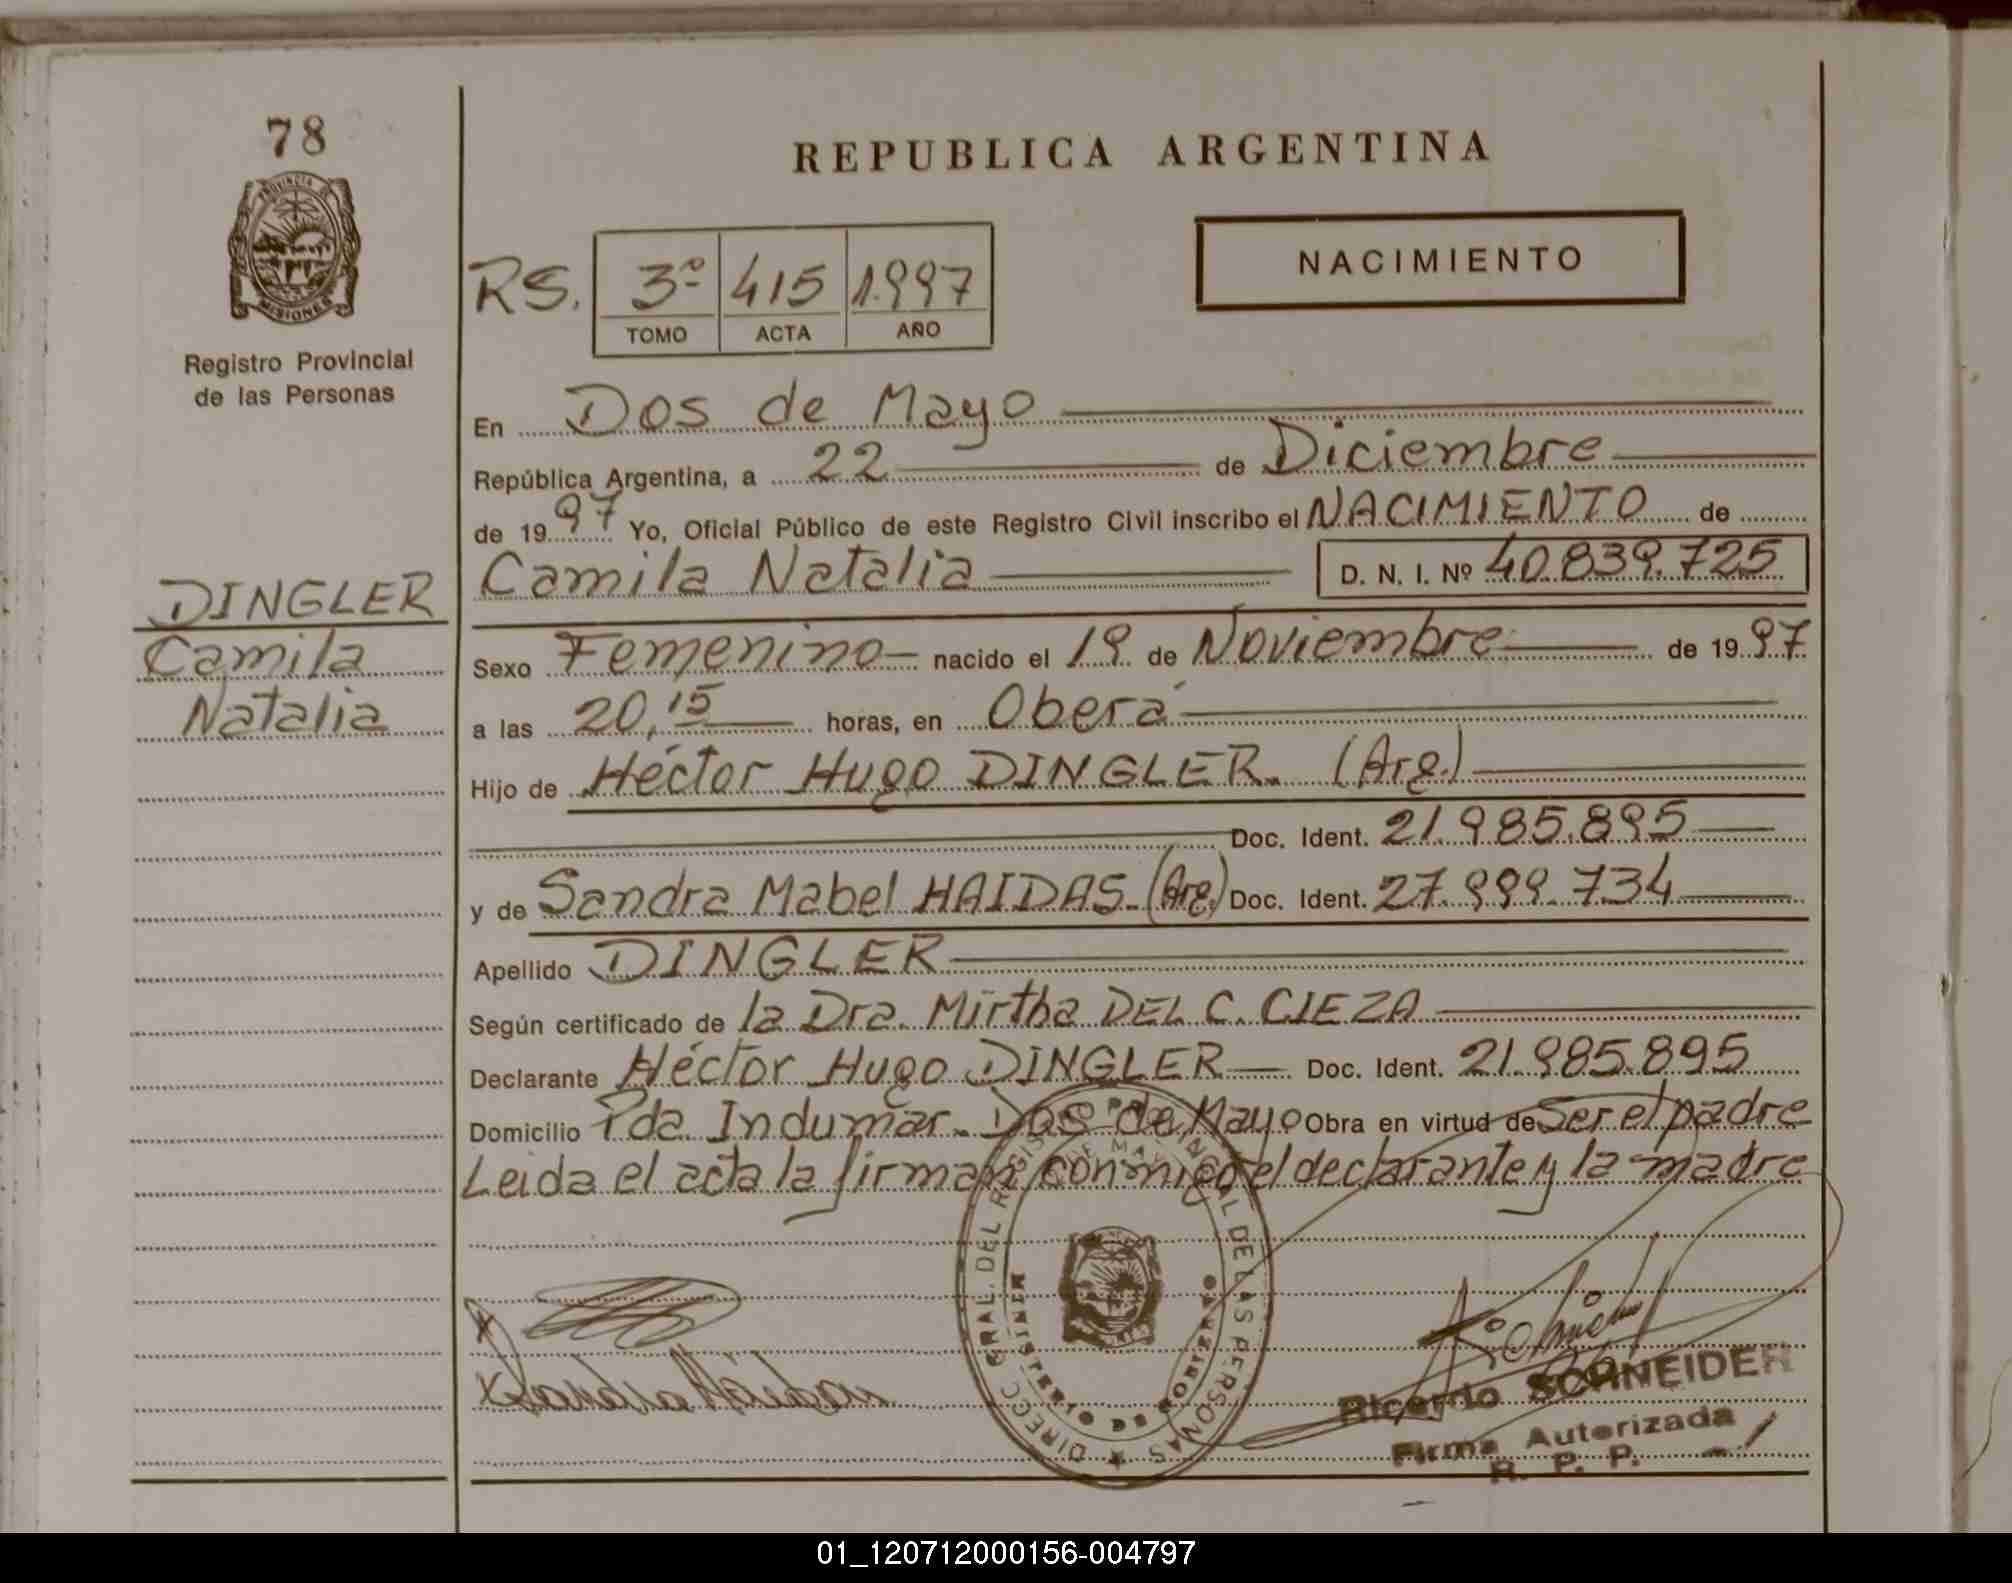 78
REPUBLICA ARGENTINA
PROVINCIA DE
MISIONES
Registro Provincial
de las Personas
RS. 3º 415 1.997
TOMO ACTA AÑO
NACIMIENTO
En Dos de Mayo
República Argentina, a 22 de Diciembre
de 1997 Yo, Oficial Público de este Registro Civil inscribo el NACIMIENTO de
Camila Natalia D. N. I. Nº 40.839.725
DINGLER
Camila
Natalia
Sexo Femenino nacido el 19 de Noviembre de 1997
a las 20,15 horas, en Oberá
Hijo de Héctor Hugo DINGLER. (Arg.)
Doc. Ident. 21.985.895
y de Sandra Mabel HAIDAS. (Arg.) Doc. Ident. 27.999.734
Apellido DINGLER
Según certificado de la Dra. Mirtha DEL C. CIEZA
Declarante Héctor Hugo DINGLER Doc. Ident. 21.985.895
Domicilio Pda. Indumar. Dos de Mayo Obra en virtud de Ser el padre
Leida el acta la firman conmigo el declarante y la madre
DIRECC GRAL. DEL REGIS PROVINCIAL DE LAS PERSONAS
MINISTERIO DE GOBIERNO
Ricardo SCHNEIDER
Firma Autorizada
R. P. P.
01_120712000156-004797